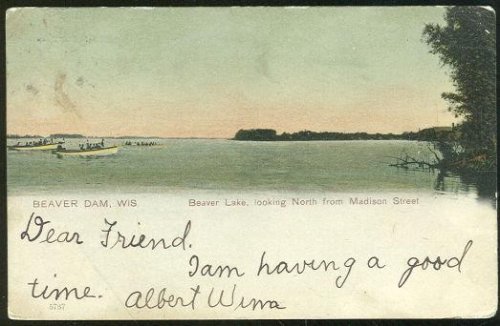 BEAVER DAM, WIS
Beaver Lake, looking North from Madison Street
Dear Friend.
I am having a good
time. Albert Wima
5737